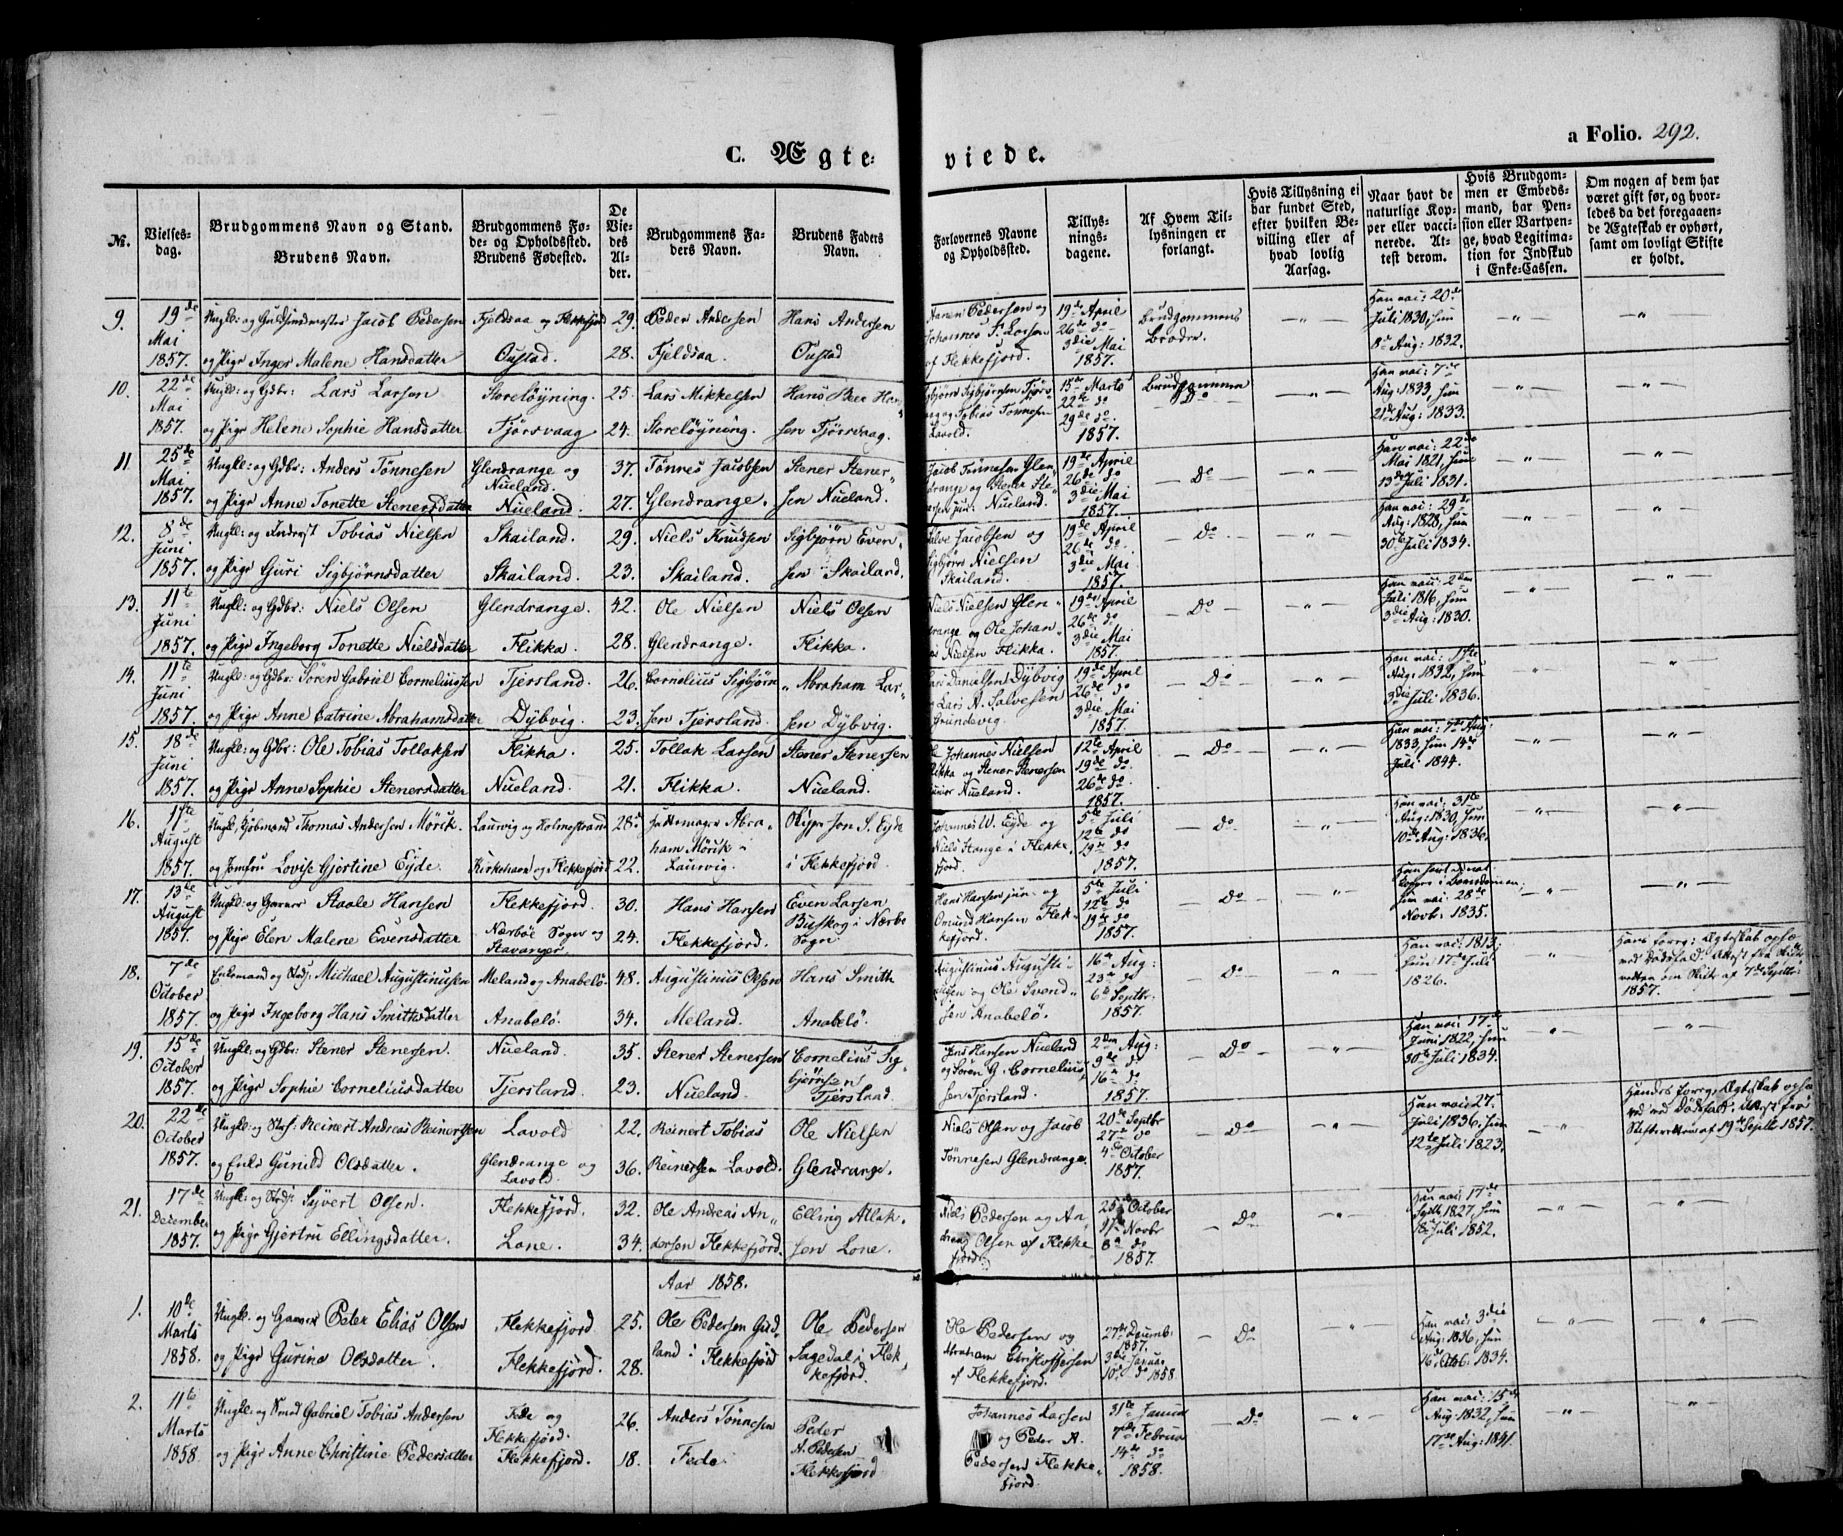 a Folio. 292.
C. Ægte-
viede.
No.
Vielses-
dag.
Brudgommens Navn og Stand.
Brudens Navn.
Brudgommens Fø-
de- og Opholdssted.
Brudens Fødested.
De
Vie-
des
Al-
der.
Brudgommens Fa-
ders Navn.
Brudens Faders
Navn.
Forlovernes Navne
og Opholdssted.
Tillys-
nings-
dagene.
Af Hvem Til-
lysningen er
forlangt.
Hvis Tillysning ei
har fundet Sted,
efter hvilken Be-
villing eller af
hvad lovlig
Aarsag.
Naar havt de
naturlige Kop-
per eller vacci-
nerede. At-
test derom.
Hvis Brudgom-
men er Embeds-
mand, har Pen-
sion eller Vartpen-
ge, hvad Legitima-
tion for Indskud
i Enke-Cassen.
Om nogen af dem har
været gift før, og hvor-
ledes da det foregaaen-
de Ægteskab er ophørt,
samt om lovligt Skifte
er holdt.
9. 19de Mai 1857.
Ungk: og Guldsmedmester Jacob Pedersen
og Pige Inger Malene Hansdatter
Fjeldsaa og Flekkefjord
Oustad.
29.
28.
Peder Andersen
Fjeldsaa
Hans Andersen
Oustad
Pedersen og
Johannes F. Larsen
af Flekkefjord.
19de April
26de do
3die Mai
1857.
Brudgommens
Broder.
Han vac: 20de
Juli 1830, hun
8de Aug: 1832.
10. 22de Mai 1857.
Ungk: og Gdbr: Lars Larsen
og Pige Helene Sophie Hansdatter
Storeløyning.
Fjørsvaag
25.
24.
Lars Mikkelsen
Storeløyning.
Hans Peer Han-
sen Fjørsvaag.
Sigbjørn Sigbjørnsen Fjørs-
vaag og Tobias Tønnesen
Lavold.
15de Marts
22de do
29de do
1857.
Brudgommen
Do
Han vac: 7de
Aug: 1833, hun
21de Aug: 1833.
11. 25de Mai 1857.
Ungk: og Gdbr: Anders Tønnesen
og Pige Anne Tonette Stenersdatter
Glendrange og
Nueland.
Nueland.
37.
27.
Tønnes Jacobsen
Glendrange.
Stener Stener-
sen Nueland.
Jacob Tønnesen Glen-
drange og Stener Ste-
nersen jun: Nueland.
19de April
26de do
3die Mai
1857.
Do
Han vac: 22de
Mai 1821, hun
13de Juli 1831.
12. 8de Juni 1857.
Ungk: og Inderst Tobias Nielsen
og Pige Guri Sigbjørnsdatter
Skailand.
Skailand.
29.
23.
Niels Knudsen
Skailand.
Sigbjørn Even-
sen Skailand.
Salve Jacobsen og
Sigbjørn Nielsen
Skailand.
19de April
26de do
3die Mai
1857.
Do
Han vac: 29de
Aug: 1828, hun
30te Juli 1834.
13. 11te Juni 1857.
Ungk: og Gdbr: Niels Olsen
og Pige Ingeborg Tonette Nielsdatter
Glendrange.
Flikka.
42.
28.
Ole Nielsen
Glendrange.
Niels Olsen
Flikka.
Niels Nielsen Glen-
drange og Ole Johan-
nes Nielsen Flikka.
19de April
26de do
3die Mai
1857.
Do
Han vac: 2den
Juli 1816, hun
3die Aug: 1830.
14. 11te Juni 1857.
Ungk: og Gdbr: Søren Gabriel Corneliussen
og Pige Anne Catrine Abrahamsdatter
Tjersland.
Dybvig.
26.
23.
Cornelius Sigbjørn-
sen Tjersland.
Abraham Lar-
sen Dybvig.
Danielsen Dybvig
og Lars A. Salvesen
Grundevig.
19de April
26de do
3die Mai
1857.
Do
Han vac: 1ste
Aug: 1832, hun
3die Juli 1836.
15. 18de Juni 1857.
Ungk: og Gdbr: Ole Tobias Tollaksen
og Pige Anne Sophie Stenersdatter
Flikka.
Nueland.
25.
21.
Tollak Larsen
Flikka.
Stener Stenersen
Nueland.
Ole Johannes Nielsen
Flikka og Stener Stenersen
junior Nueland.
12te April
19de do
26de do
1857.
Do
Han vac: 7de Aug:
1833, hun 14de
Juli 1844.
16. 1ste August 1857.
Ungk: Kjøbmand Thomas Andersen Mörik.
og Jomfru Lovise Gjertine Eyde.
Laurvig og Holmestrand
Kirkehavn og Flekkefjord
28.
22.
Abra-
ham Mörik i
Laurvig.
Skipr Jon S. Eyde
i Flekkefjord.
Johannes W. Eyde og
Niels Stange i Flekke-
fjord.
5te Juli
12te do
19de do
1857.
Do
Han vac: 31te
Aug: 1830, hun
10de Aug: 1836.
17. 13de August 1857.
Ungk: og Garver Staale Hansen
og Pige Elen Malene Evensdatter
Flekkefjord.
Nærbøe Sogn og
Stavanger.
30.
24.
Hans Hansen
Flekkefjord.
Even Larsen
Buskog i Nærbø
Sogn.
Hans Hansen jun: og
Omund Hansen Flek-
kefjord.
5te Juli
12te do
19de do
1857.
Do
Han havt de nat:
Kopper i Barndommen,
hun vac: 28de
Novb: 1835.
18. 7de October 1857.
Enkemand og Michael Augustinusen
og Pige Ingeborg Hans Smithsdatter
Meland og Anabelö.
Anabelö.
48.
34.
Augustinus Olsen
Meland.
Hans Smith
Anabelö.
Augustinus Augusti-
nusen og Ole Svend-
sen Anabelö.
16de Aug:
23de do
6te Septbr.
1857.
Do
Han vac: 1813,
hun 17de Juli
1826.
Hans forrg: Ægteskab ophæ-
vet ved Dødsfald. Attest fra Skifte-
retten om Skift af 7de Septbr:
1857.
19. 15de October 1857.
Ungk: og Gdbr: Stener Stenersen.
og Pige Sophie Corneliusdatter
Nueland.
Tjersland.
35.
23.
Stener Stenersen
Nueland.
Cornelius Sig-
bjørnsen
Tjersland.
Jens Hansen Nueland
og Søren G. Cornelius-
sen Tjersland.
2den Aug:
9de do
16de do
1857.
Do
Han vac: 17de
Juni 1822, hun
30te Juli 1834.
20. 22de October 1857.
Ungk: og Reinert Andreas Reinertsen
og Enke Gunild Olsdatter.
Lavold
Glendrange og
Lavold.
22.
36.
Reinert Tobias
Reinertsen Lavold.
Ole Nielsen
Glendrange.
Niels Olsen og Jacob
Tønnesen Glendrange.
20de Septbr
27de do
4de October
1857.
Do
Han vac: 27de
Juli 1836, hun
12te Juli 1823.
Hendes forrg. Ægteskab ophæ-
vet ved Dødsfald. Attest fra
Skifteretten af 19de Septbr 1857.
21. 17de December 1857.
Ungk: og Syvert Olsen.
og Pige Gjertru Ellingsdatter.
Flekkefjord.
Lone.
32.
34.
Ole Andreas An-
dersen Flekkefjord.
Elling Atlak-
sen Lone.
Niels Pedersen og An-
dreas Olsen af Flekke-
fjord.
25de October
1ste Novbr
8de do
1857.
Do
Han vac: 17de
Septb 1827, hun
18de Juli 1852.
Aar 1858.
1. 10de Marts 1858.
Ungk: og Garver Peter Elias Olsen
og Pige Gurine Olsdatter.
Flekkefjord
Flekkefjord.
25.
28.
Ole Pedersen Gud-
land i Flekkefjord
Ole Pedersen
Sagedal i Flek-
kefjord.
Ole Pedersen og
Abraham Christoffersen
af Flekkefjord.
27de Decemb:
1857.
3die Januar
10de do 1858.
Do
Han vac: 3die
Aug: 1836, hun
16de Octb: 1834.
2. 11te Marts 1858
Ungk: og Smed Gabriel Tobias Andersen
og Pige Anne Christine Pedersdatter
Fede og
Flekkefjord.
Flekkefjord.
26.
18.
Anders Tønnesen
Fede.
Peder
A. Pedersen
Flekkefjord
Johannes Larsen
og Peder A.
Pedersen Flekke-
fjord.
31te Januar
7de Februar
14de do
1858.
Do
Han vac: 15de
Aug: 1832, hun
17de Aug: 1841.